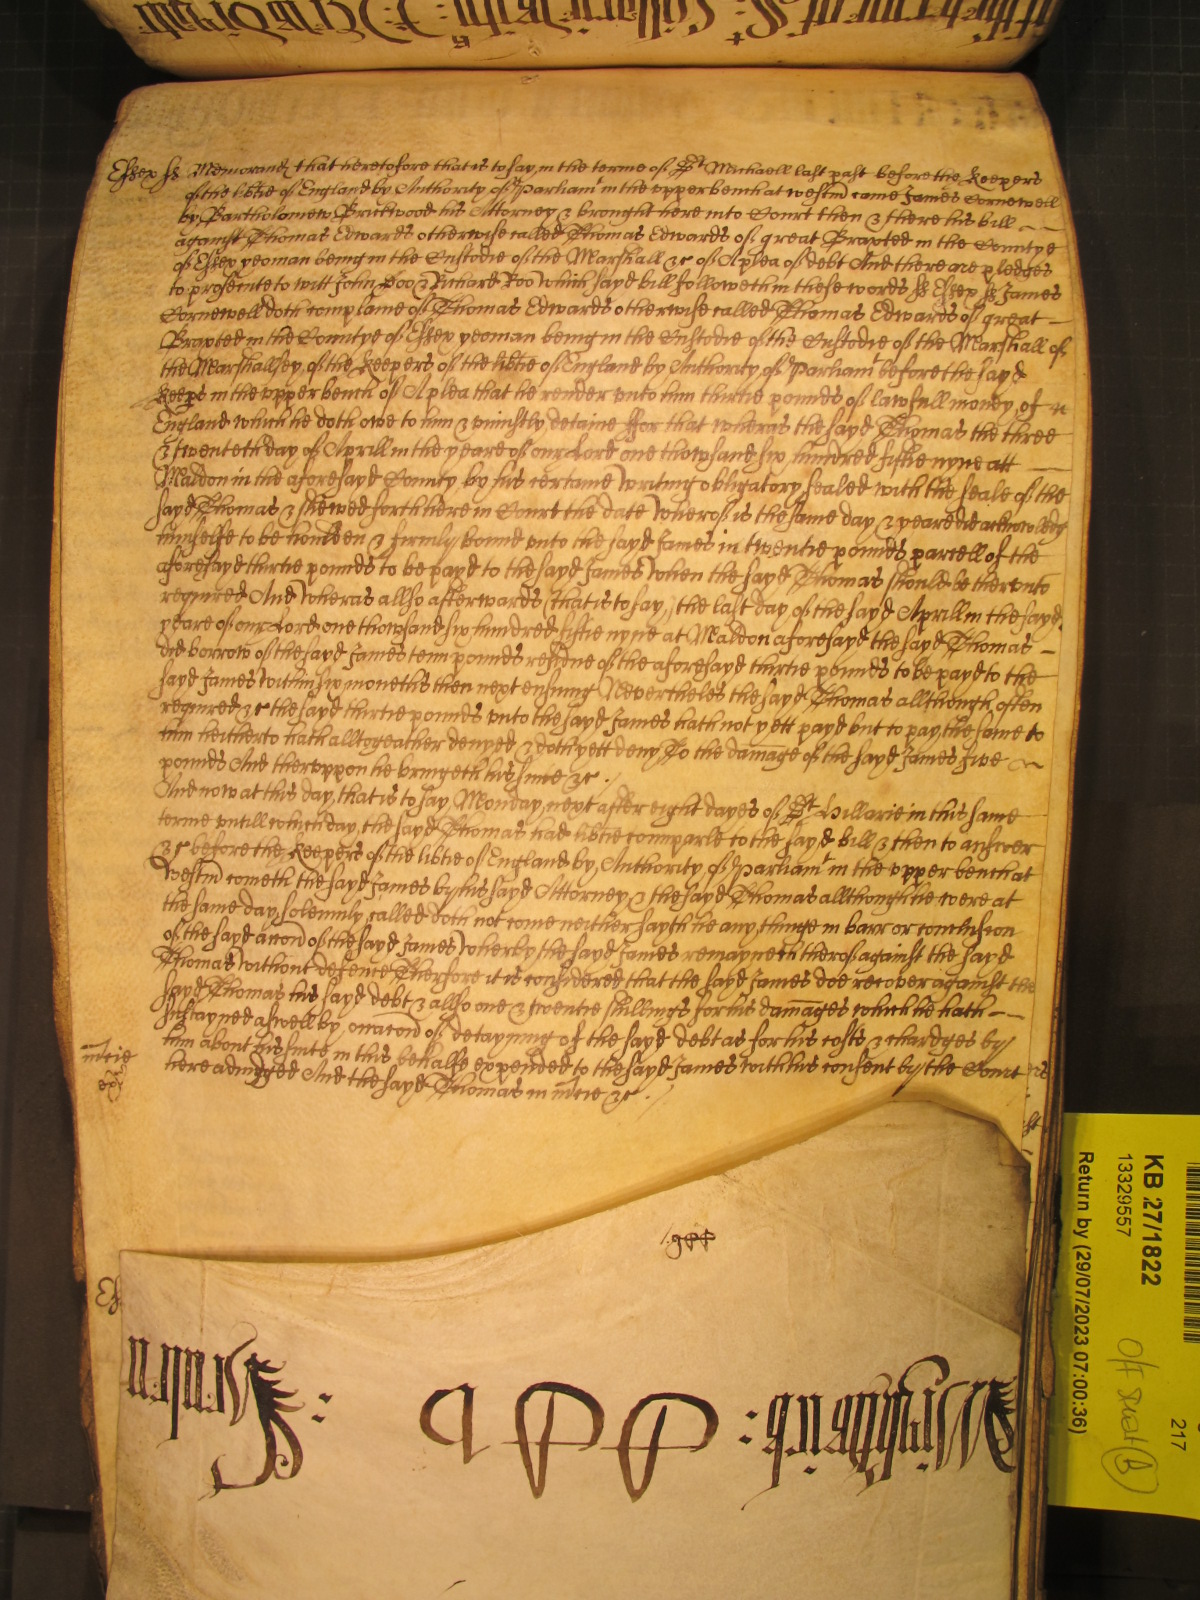 Essex ss Memorand that heretofore that is to say in the terme of St Michaell last past before the Keepers
of the libtie of England by Authority of Parliamt in the upper bench at westm came James Cornewell
by Bartholomew Brickwood his Attorney & brought here into Court then & there his bill
against Thomas Edwards otherwise called Thomas Edwards of great Braxted in the Countye
of Essex yeoman being in the Custodie of the Marshall &c of A plea of debt And there are pledges
to prosecute to witt John Doo & Richard Roo which sayd bill followeth in these words ss Essex ss James
Cornewell doth complaine of Thomas Edwards otherwise called Thomas Edwards of great
Braxted in the Countye of Essex yeoman being in the Custodie of the Custodie of the Marshall of
the Marshallsey of the Keepers of the libtie of England by Authority of Parliamt before the sayd
Keeps in the upper bench of A plea that he render unto him thirtie pounds of lawfull money of
England which he doth owe to him & uniustly detaine ffor that wheras the sayd Thomas the three
& twenteth day of Aprill in the yeare of our Lord one thowsand six hundred fiftie nyne att
Maldon in the aforesayd County by his certaine writing obligatory sealed with the seale of the
sayd Thomas & shewed forth here in Court the date wherof is the same day & yeare did acknowledg
himselfe to be houlden & firmly bound unto the sayd James in twentie pounds parcell of the
aforesayd thirtie pounds to be payd to the sayd James when the sayd Thomas should be therunto
required And wheras allso afterwards that is to say the last day of the sayd Aprill in the sayd
yeare of our Lord one thowsand six hundred fiftie nyne at Maldon aforesayd the sayd Thomas
did borrow of the sayd James tenn pounds residue of the aforesayd thirtie pounds to be payd to the
sayd James within six moneths then next ensuing Nevertheles the sayd Thomas allthough often
required &c the sayd thirtie pounds unto the sayd James hath not yett payd but to pay the same to
him hitherto hath alltogeather denyed & doth yett deny To the damage of the sayd James five
pounds And theruppon he bringeth his suite &c
And now at this day that is to say Monday next after eight dayes of St Hillarie in this same
terme untill which day the sayd Thomas had libtie to imparle to the sayd bill & then to answer
&c before the Keepers of the libtie of England by Authority of Parliamt in the upper bench at
westm cometh the sayd James by his sayd Attorney & the sayd Thomas allthough he were at
the same day solemnly called doth not come neither sayth he any thinge in barr or conclusion
of the sayd accon of the sayd James wherby the sayd James remayneth therof against the sayd
Thomas without defence Therfore it is considered that the sayd James doe recover against the
sayd Thomas his sayd debt & allso one & twentie shillings for his damages which he hath
sustayned aswell by occacion of detayning of the sayd debt as for his costs & chardges by
him about his suite in this behalfe expended to the sayd James with his consent by the Court
here adiudged And the sayd Thomas in mcie &c
in mcie
KB 27/1822
13329557
Return by (29/07/2023 07:00:36)
217